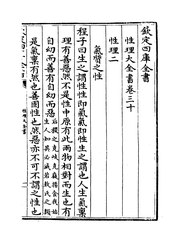 欽定四庫全書
性理大全書卷三十
性理二
氣質之性
程子曰生之謂性性即氣氣即性生之謂也人生氣稟
理有善惡然不是性中原有此兩物相對而生也有
自幼而善有自幼而惡
是氣稟有然也善固性也然惡亦不可不謂之性也